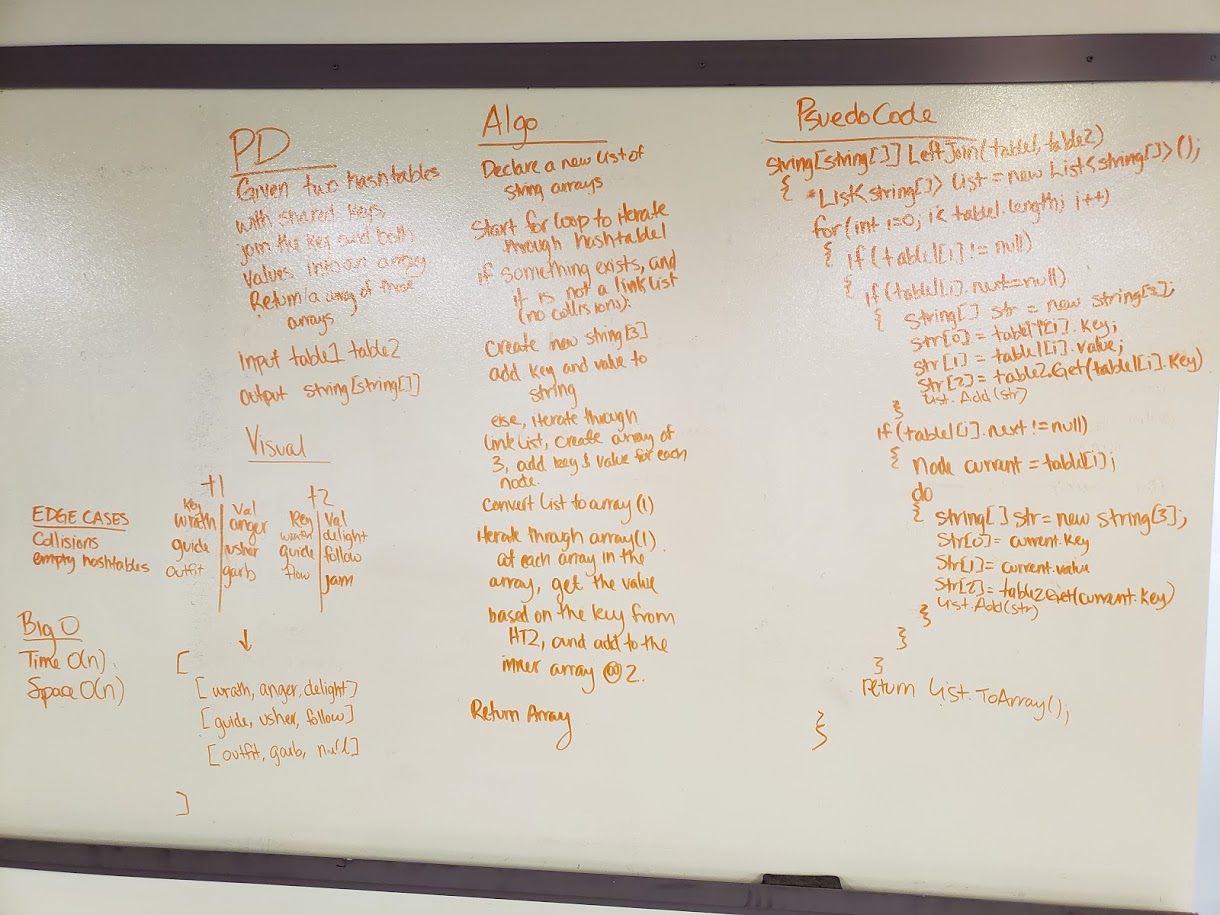 PD
Given two hashtables
with shared keys
join the key and both
values into an array
Return a array of those
arrays
Input table1 table2
output string[string[]]
Visual
t1
Key Val
wrath anger
guide usher
outfit garb
t2
Key Val
wrath delight
guide follow
flow jam
[
[wrath, anger, delight]
[guide, usher, follow]
[outfit, garb, null]
]
EDGE CASES
Collisions
empty hashtables
Big O
Time O(n)
Space O(n)
Algo
Declare a new list of
string arrays
Start for loop to iterate
through hashtable1
if something exists, and
it is not a link list
(no collisions):
Create new string[3]
add key and value to
string
else, iterate through
link list, create array of
3, add key & value for each
node.
Convert list to array (1)
Iterate through array(1)
at each array in the
array, get the value
based on the key from
HT2, and add to the
inner array @ 2.
Return Array
PsuedoCode
String[string[]] LeftJoin(table1, table2)
{ List<string[]> list = new List<string[]>();
for(int i=0; i< table1.length; i++)
{ if (table1[i] != null)
{ if(table1[i].next==null)
{ string[] str = new string[3];
str[0] = table1[i].key;
str[1] = table1[i].value;
str[2] = table2.Get(table1[i].key)
list.Add(str)
}
if(table1[i].next != null)
{ node current = table[i];
do
{ string[] str = new string[3];
str[0] = current.key
str[1] = current.value
str[2] = table2.Get(current.key)
list.Add(str)
}
}
}
return list.ToArray();
}